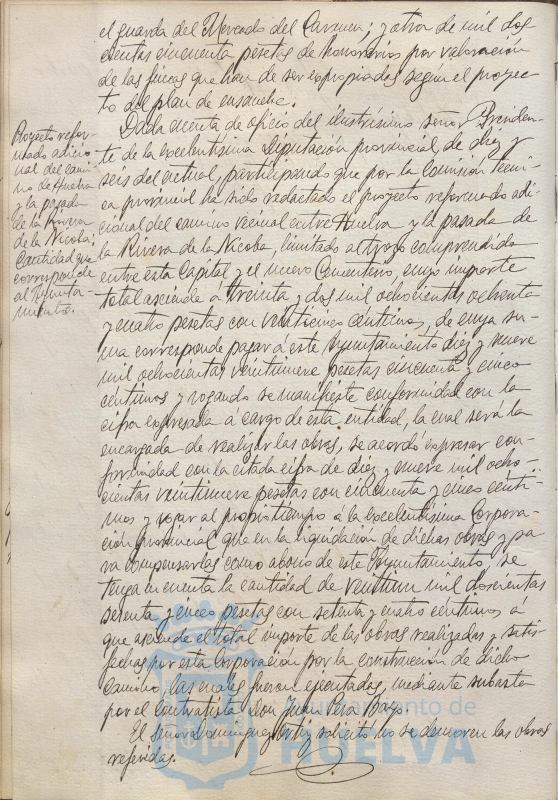 el guarda del Mercado del Carmen; y otra de mil dos
cientas cincuenta pesetas de honorarios por valoración
de las fincas que han de ser expropiadas según el proyec-
to del plan de ensanche.
Proyecto refor-
mado adicio
nal del cami
no de Huelva
y la pasada
de la Rivera
de la Nicoba;
Cantidad que
corresponde
al Ayunta-
miento.
Dada cuenta de oficio del ilustrísimo señor Presiden-
te de la Excelentísima Diputación provincial de diez y
seis del actual, participando que por la Comisión técni-
ca provincial ha sido redactado el proyecto reformado adi-
cional del camino vecinal entre Huelva y la pasada de
la Rivera de la Nicoba, limitado al trozo comprendido
entre esta Capital y el nuevo Cementerio, cuyo importe
total asciende á treinta y dos mil ochocientas ochenta
y cuatro pesetas con veinticinco céntimos, de cuya su-
ma corresponde pagar á este Ayuntamiento diez y nueve
mil ochocientas veintinueve pesetas cincuenta y cinco
céntimos y rogando se manifieste conformidad con la
cifra expresada á cargo de esta entidad, la cual será la
encargada de realizar las obras, se acordó expresar con-
formidad con la citada cifra de diez y nueve mil ocho-
cientas veintinueve pesetas con cincuenta y cinco cénti-
mos y rogar al propio tiempo á la Excelentísima Corpora-
ción provincial que en la liquidación de dichas obras y pa-
ra compensarlas como abono de este Ayuntamiento, se
tenga en cuenta la cantidad de veintiun mil doscientas
setenta y cinco pesetas con setenta y cuatro céntimos a
que asciende el total importe de las obras realizadas y satis-
fechas por esta Corporación por la construcción de dicho
camino, las cuales fueron ejecutadas, mediante subasta
por el contratista Don Juan
El Señor Dominguez Ortiz solicitó no se demoren las obras
referidas.
Ayuntamiento de
HUELVA